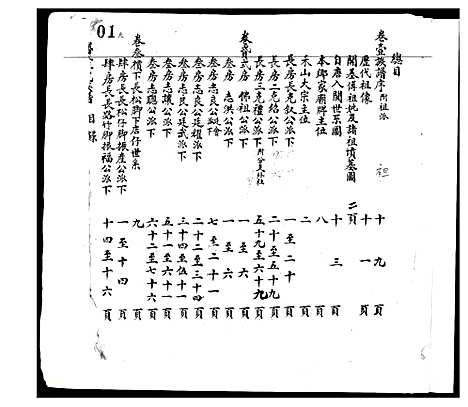 總目
卷壹族譜序 附祖派 十九頁
歷代祖像 十一頁
開基傳祖地及諸祖墳墓圖 二頁
自唐入閩世系圖 十三頁
本鄉家廟牌主位 八頁
禾山大宗主位 二頁
長房長克叙公派下 一至二十頁
長房二克紹公派下 二十至五十九頁
長房三克禮公派下 五十九至六十九頁
卷貳 貳房 佛祖公派下 一至六頁
叁房 志洪公派下 一至六頁
叁房志良公 七至二十一頁
叁房志良公廷耀派下 二十二至三十四頁
叁房志良公廷武派下 三十四至伍十一頁
叁房志讓公派下 五十一至六十二頁
叁房志聰公派下 六十二至七十六頁
卷叁 下長松脚下店仔世系 九頁
肆房長長松仔脚振產公派下 一至十四頁
肆房長長路竹脚振福公派下 十四至十六頁
目錄
01